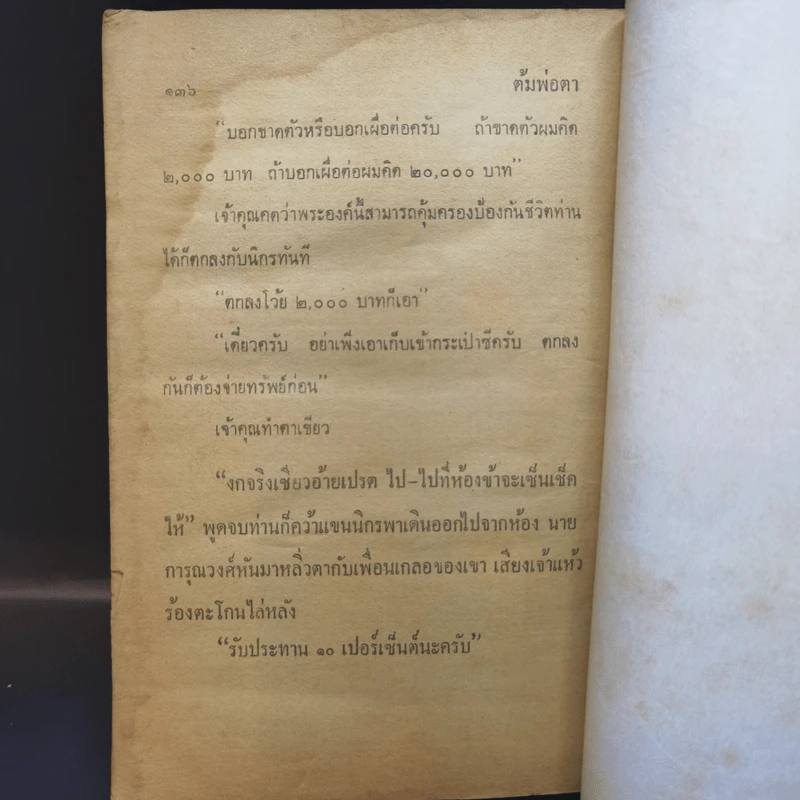 ๑๓๖ ต้มพ่อตา
“บอกขาดตัวหรือบอกเผื่อต่อครับ ถ้าขาดตัวผมคิด
๒,๐๐๐ บาท ถ้าบอกเผื่อต่อผมคิด ๒๐,๐๐๐ บาท”
เจ้าคุณคิดว่าพระองค์นี้สามารถคุ้มครองป้องกันชีวิตท่าน
ได้ก็ตกลงกับนิกรทันที
“ตกลงโว้ย ๒,๐๐๐ บาทก็เอา”
“เดี๋ยวครับ อย่าเพิ่งเอาเก็บเข้ากระเป๋าซีครับ ตกลง
กันก็ต้องจ่ายทรัพย์ก่อน”
เจ้าคุณทำตาเขียว
“งกจริงเชียวอ้ายเปรต ไป-ไปที่ห้องข้าจะเซ็นเช็ค
ให้” พูดจบท่านก็คว้าแขนนิกรพาเดินออกไปจากห้อง นาย
การุณวงศ์หันมาหลิ่วตากับเพื่อนเกลอของเขา เสียงเจ้าแห้ว
ร้องตะโกนไล่หลัง
“รับประทาน ๑๐ เปอร์เซ็นต์นะครับ”